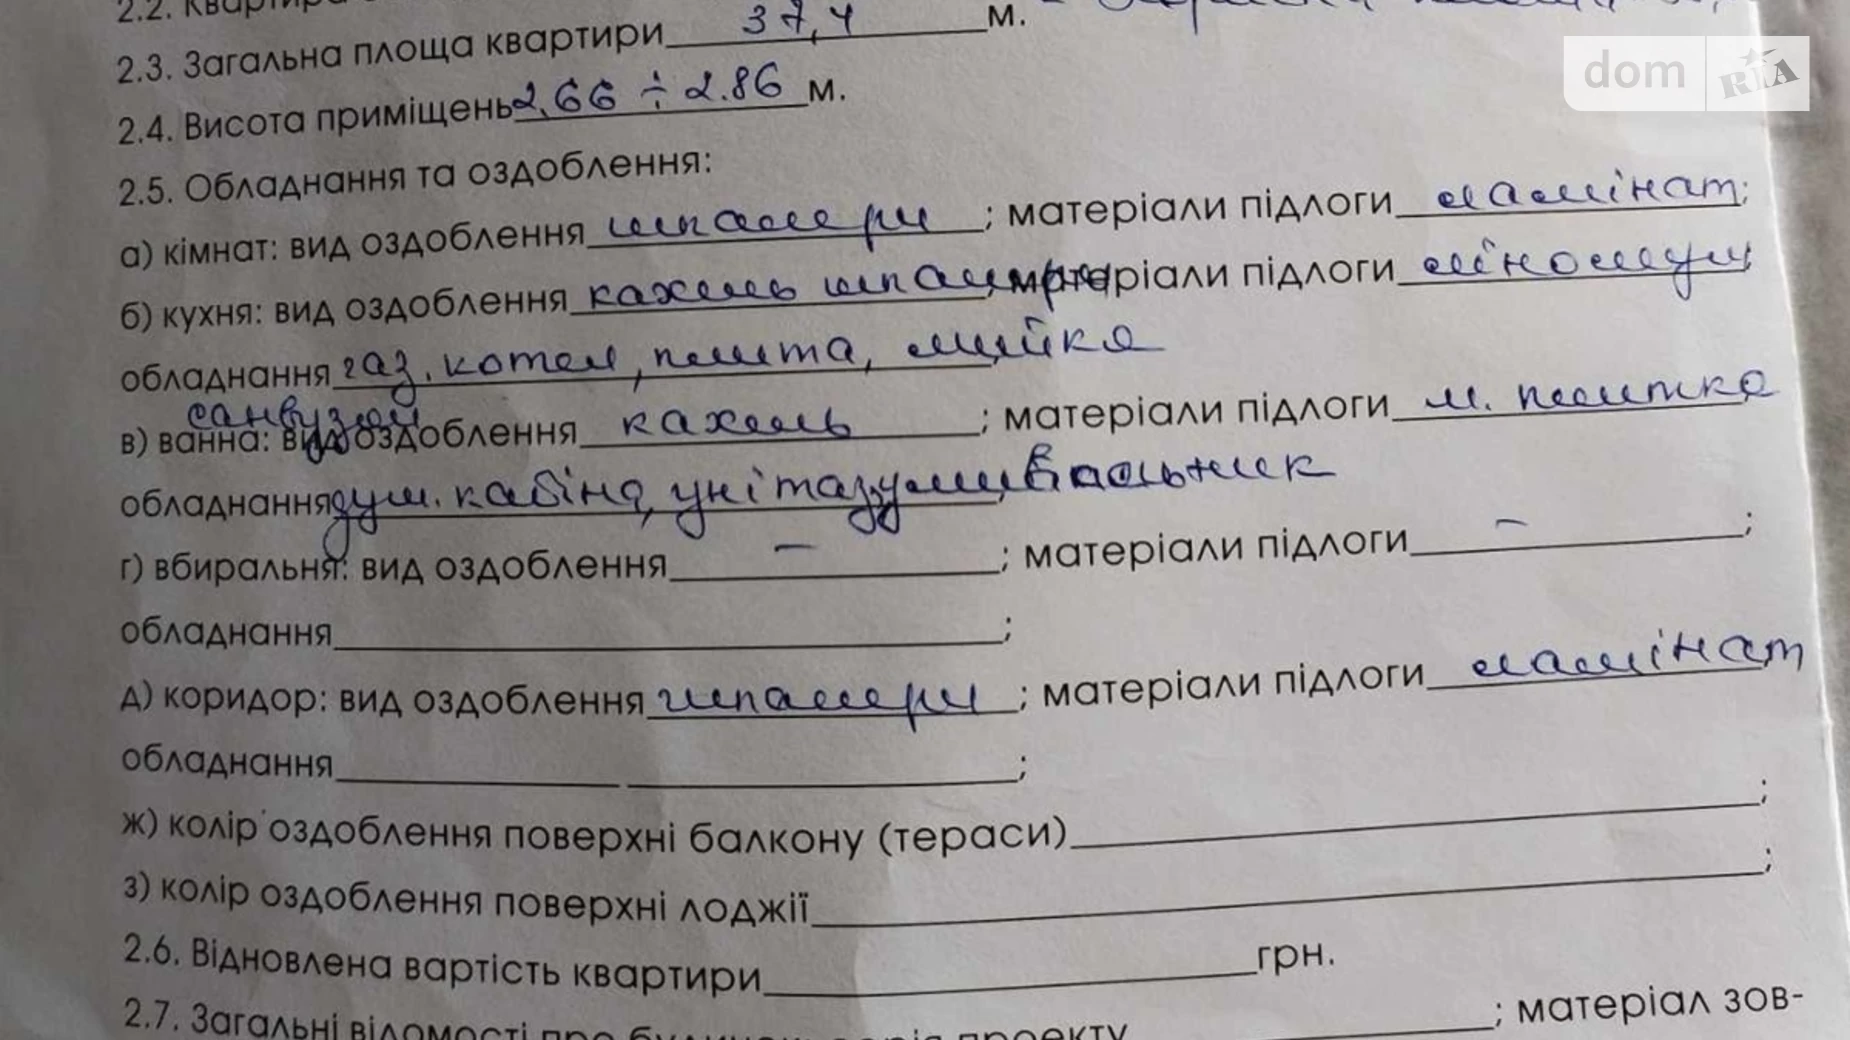 2.2. Квартира
2.3. Загальна площа квартири 37,4 м.
dom RIA
2.4. Висота приміщень 2.66 ÷ 2.86 м.
2.5. Обладнання та оздоблення:
а) кімнат: вид оздоблення шпалери ; матеріали підлоги ламінат;
б) кухня: вид оздоблення кахель шпалери матеріали підлоги лінолеум
обладнання газ. котел, плита, мийка
санвузол
в) ванна: вид оздоблення кахель ; матеріали підлоги м. плитка
обладнання душ. кабіна, унітаз, умивальник
г) вбиральня: вид оздоблення — ; матеріали підлоги — ;
обладнання ;
д) коридор: вид оздоблення шпалери ; матеріали підлоги ламінат
обладнання ;
ж) колір оздоблення поверхні балкону (тераси) ;
з) колір оздоблення поверхні лоджії ;
2.6. Відновлена вартість квартири грн.
2.7. Загальні відомості про будинок: серія проекту ; матеріал зов-